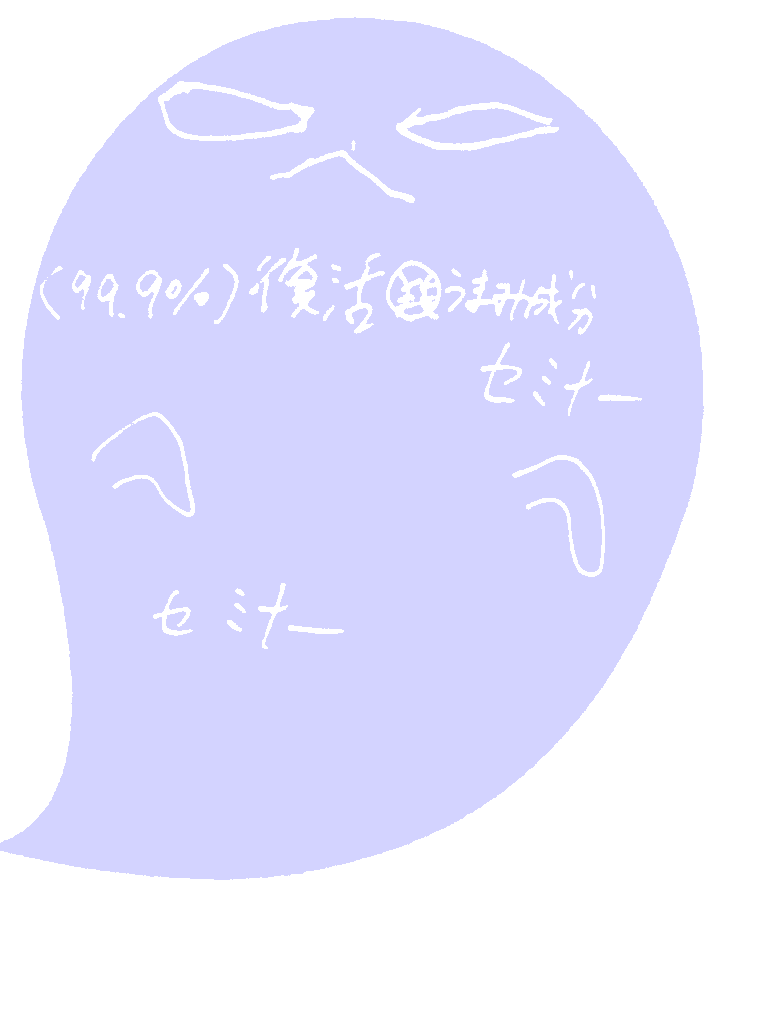 (99.9%)復活うまみ成分
セミナー
セミナー